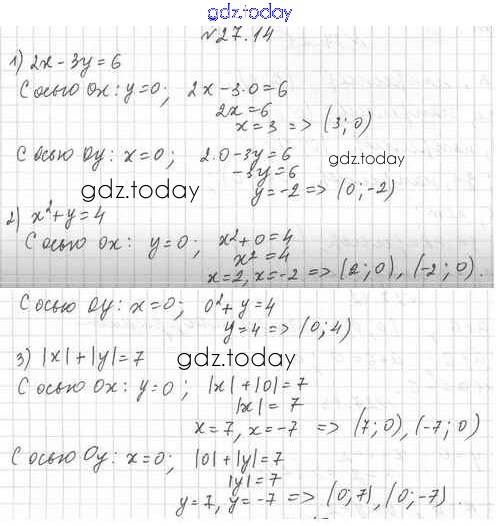 gdz.today
№27.14
1) 2x - 3y = 6
С осью Ox: y=0; 2x - 3·0 = 6
2x = 6
x = 3 => (3; 0)
С осью Oy: x=0; 2·0 - 3y = 6
gdz.today
-3y = 6
gdz.today
y = -2 => (0; -2)
2) x² + y = 4
С осью Ox: y=0; x² + 0 = 4
x² = 4
x = 2, x = -2 => (2; 0), (-2; 0).
С осью Oy: x=0; 0² + y = 4
y = 4 => (0; 4)
3) |x| + |y| = 7
gdz.today
С осью Ox: y=0; |x| + |0| = 7
|x| = 7
x = 7, x = -7 => (7; 0), (-7; 0)
С осью Oy: x=0; |0| + |y| = 7
|y| = 7
y = 7, y = -7 => (0; 7), (0; -7).